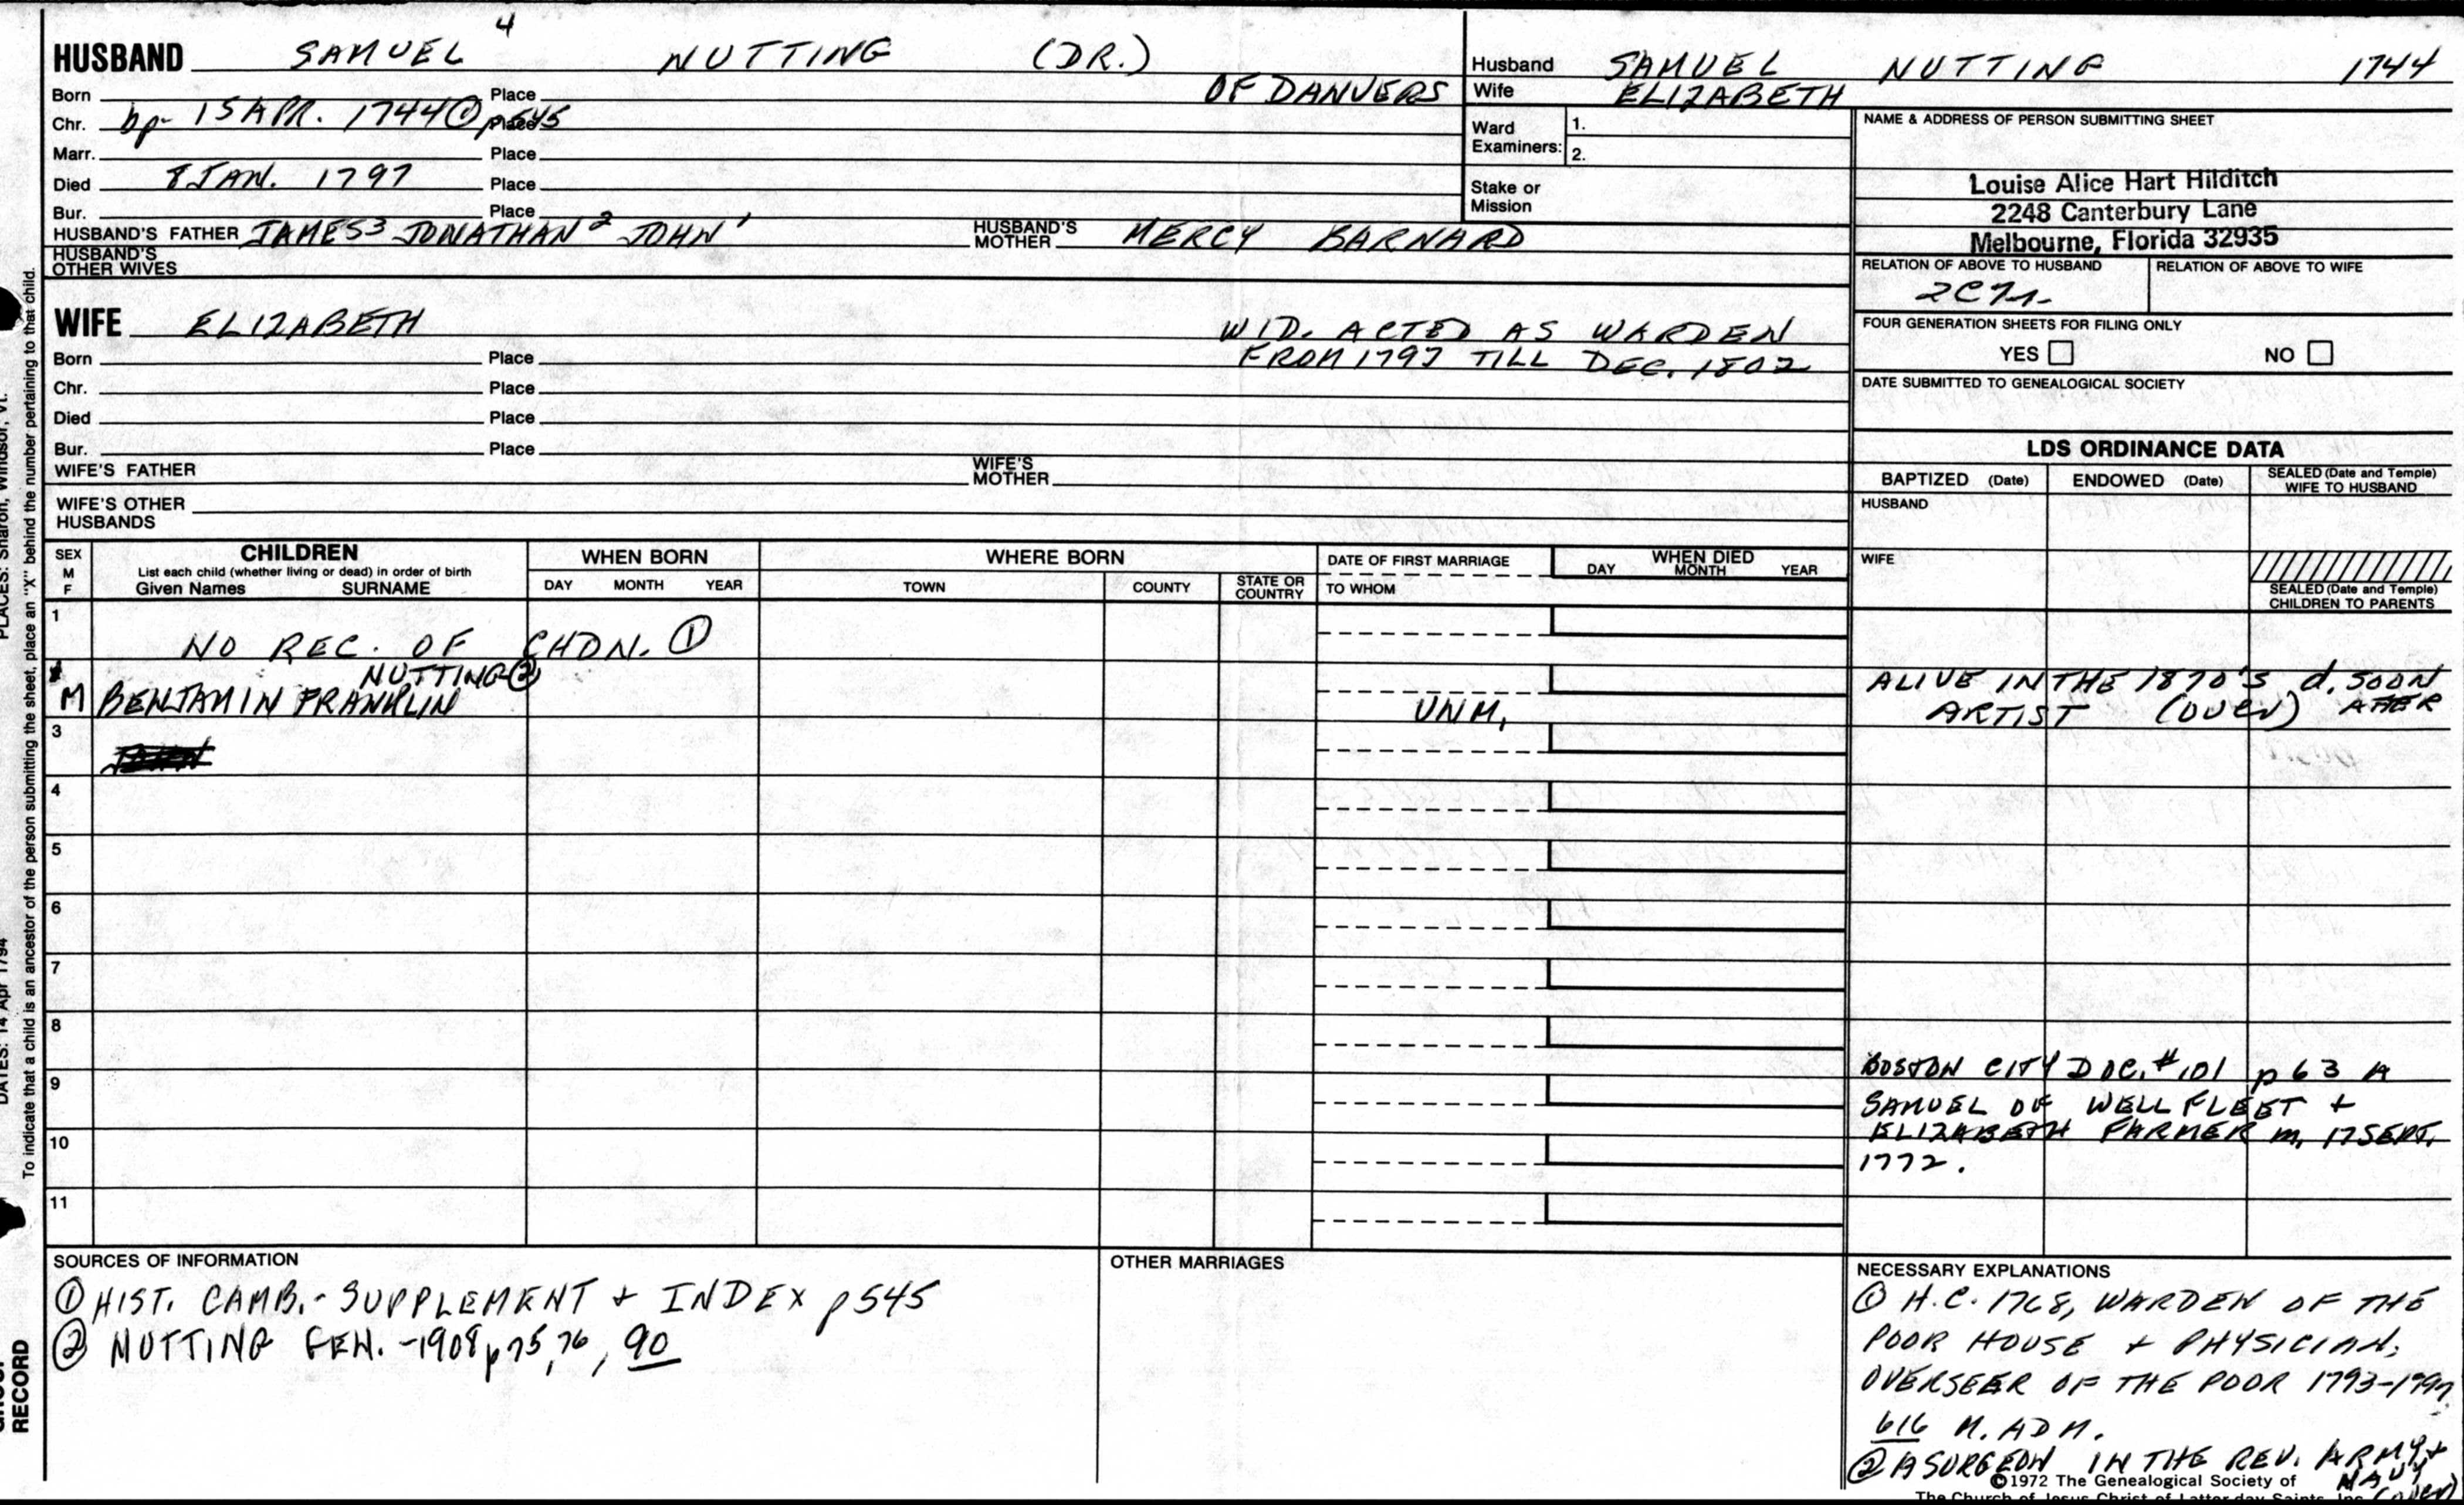 4
HUSBAND SAMUEL NUTTING (DR.)
Born Place OF DANVERS
Chr. bp- 15 APR. 1744 ① p545 Place
Marr. Place
Died 8 JAN. 1797 Place
Bur. Place
HUSBAND'S FATHER JAMES³ JONATHAN² JOHN¹ HUSBAND'S MOTHER MERCY BARNARD
HUSBAND'S OTHER WIVES
WIFE ELIZABETH WID. ACTED AS WARDEN
Born Place FROM 1797 TILL DEC. 1802
Chr. Place
Died Place
Bur. Place
WIFE'S FATHER WIFE'S MOTHER
WIFE'S OTHER HUSBANDS
Husband SAMUEL NUTTING 1744
Wife ELIZABETH
Ward Examiners: 1.
2.
Stake or Mission
NAME & ADDRESS OF PERSON SUBMITTING SHEET
Louise Alice Hart Hilditch
2248 Canterbury Lane
Melbourne, Florida 32935
RELATION OF ABOVE TO HUSBAND RELATION OF ABOVE TO WIFE
FOUR GENERATION SHEETS FOR FILING ONLY
YES NO
DATE SUBMITTED TO GENEALOGICAL SOCIETY
LDS ORDINANCE DATA
BAPTIZED (Date) ENDOWED (Date) SEALED (Date and Temple) WIFE TO HUSBAND
HUSBAND
WIFE
SEALED (Date and Temple) CHILDREN TO PARENTS
SEX M F
CHILDREN
List each child (whether living or dead) in order of birth
Given Names SURNAME
WHEN BORN
DAY MONTH YEAR
WHERE BORN
TOWN COUNTY STATE OR COUNTRY
DATE OF FIRST MARRIAGE
TO WHOM
WHEN DIED
DAY MONTH YEAR
1
NO REC. OF CHDN. ①
NUTTING ②
M BENJAMIN FRANKLIN UNM.
ALIVE IN THE 1870'S d. SOON
ARTIST (OVER) AFTER
3
4
5
6
7
8
9
10
11
BOSTON CITY DOC. #101 p 63 A
SAMUEL OF WELLFLEET +
ELIZABETH FARMER m. 17 SEPT.
1772.
SOURCES OF INFORMATION
① HIST. CAMB. - SUPPLEMENT + INDEX p545
② NUTTING GEN. -1908 p75, 76, 90
OTHER MARRIAGES
NECESSARY EXPLANATIONS
① H.C. 1768, WARDEN OF THE
POOR HOUSE + PHYSICIAN,
OVERSEER OF THE POOR 1793-1797
616 M. ADM.
② A SURGEON IN THE REV. ARMY +
NAVY (OVER)
©1972 The Genealogical Society of
The Church of Jesus Christ of Latter-day Saints, Inc.
PLACES: Sharon, Windsor, Vt.
DATES: 14 Apr 1794
To indicate that a child is an ancestor of the person submitting the sheet, place an "X" behind the number pertaining to that child.
GROUP
RECORD